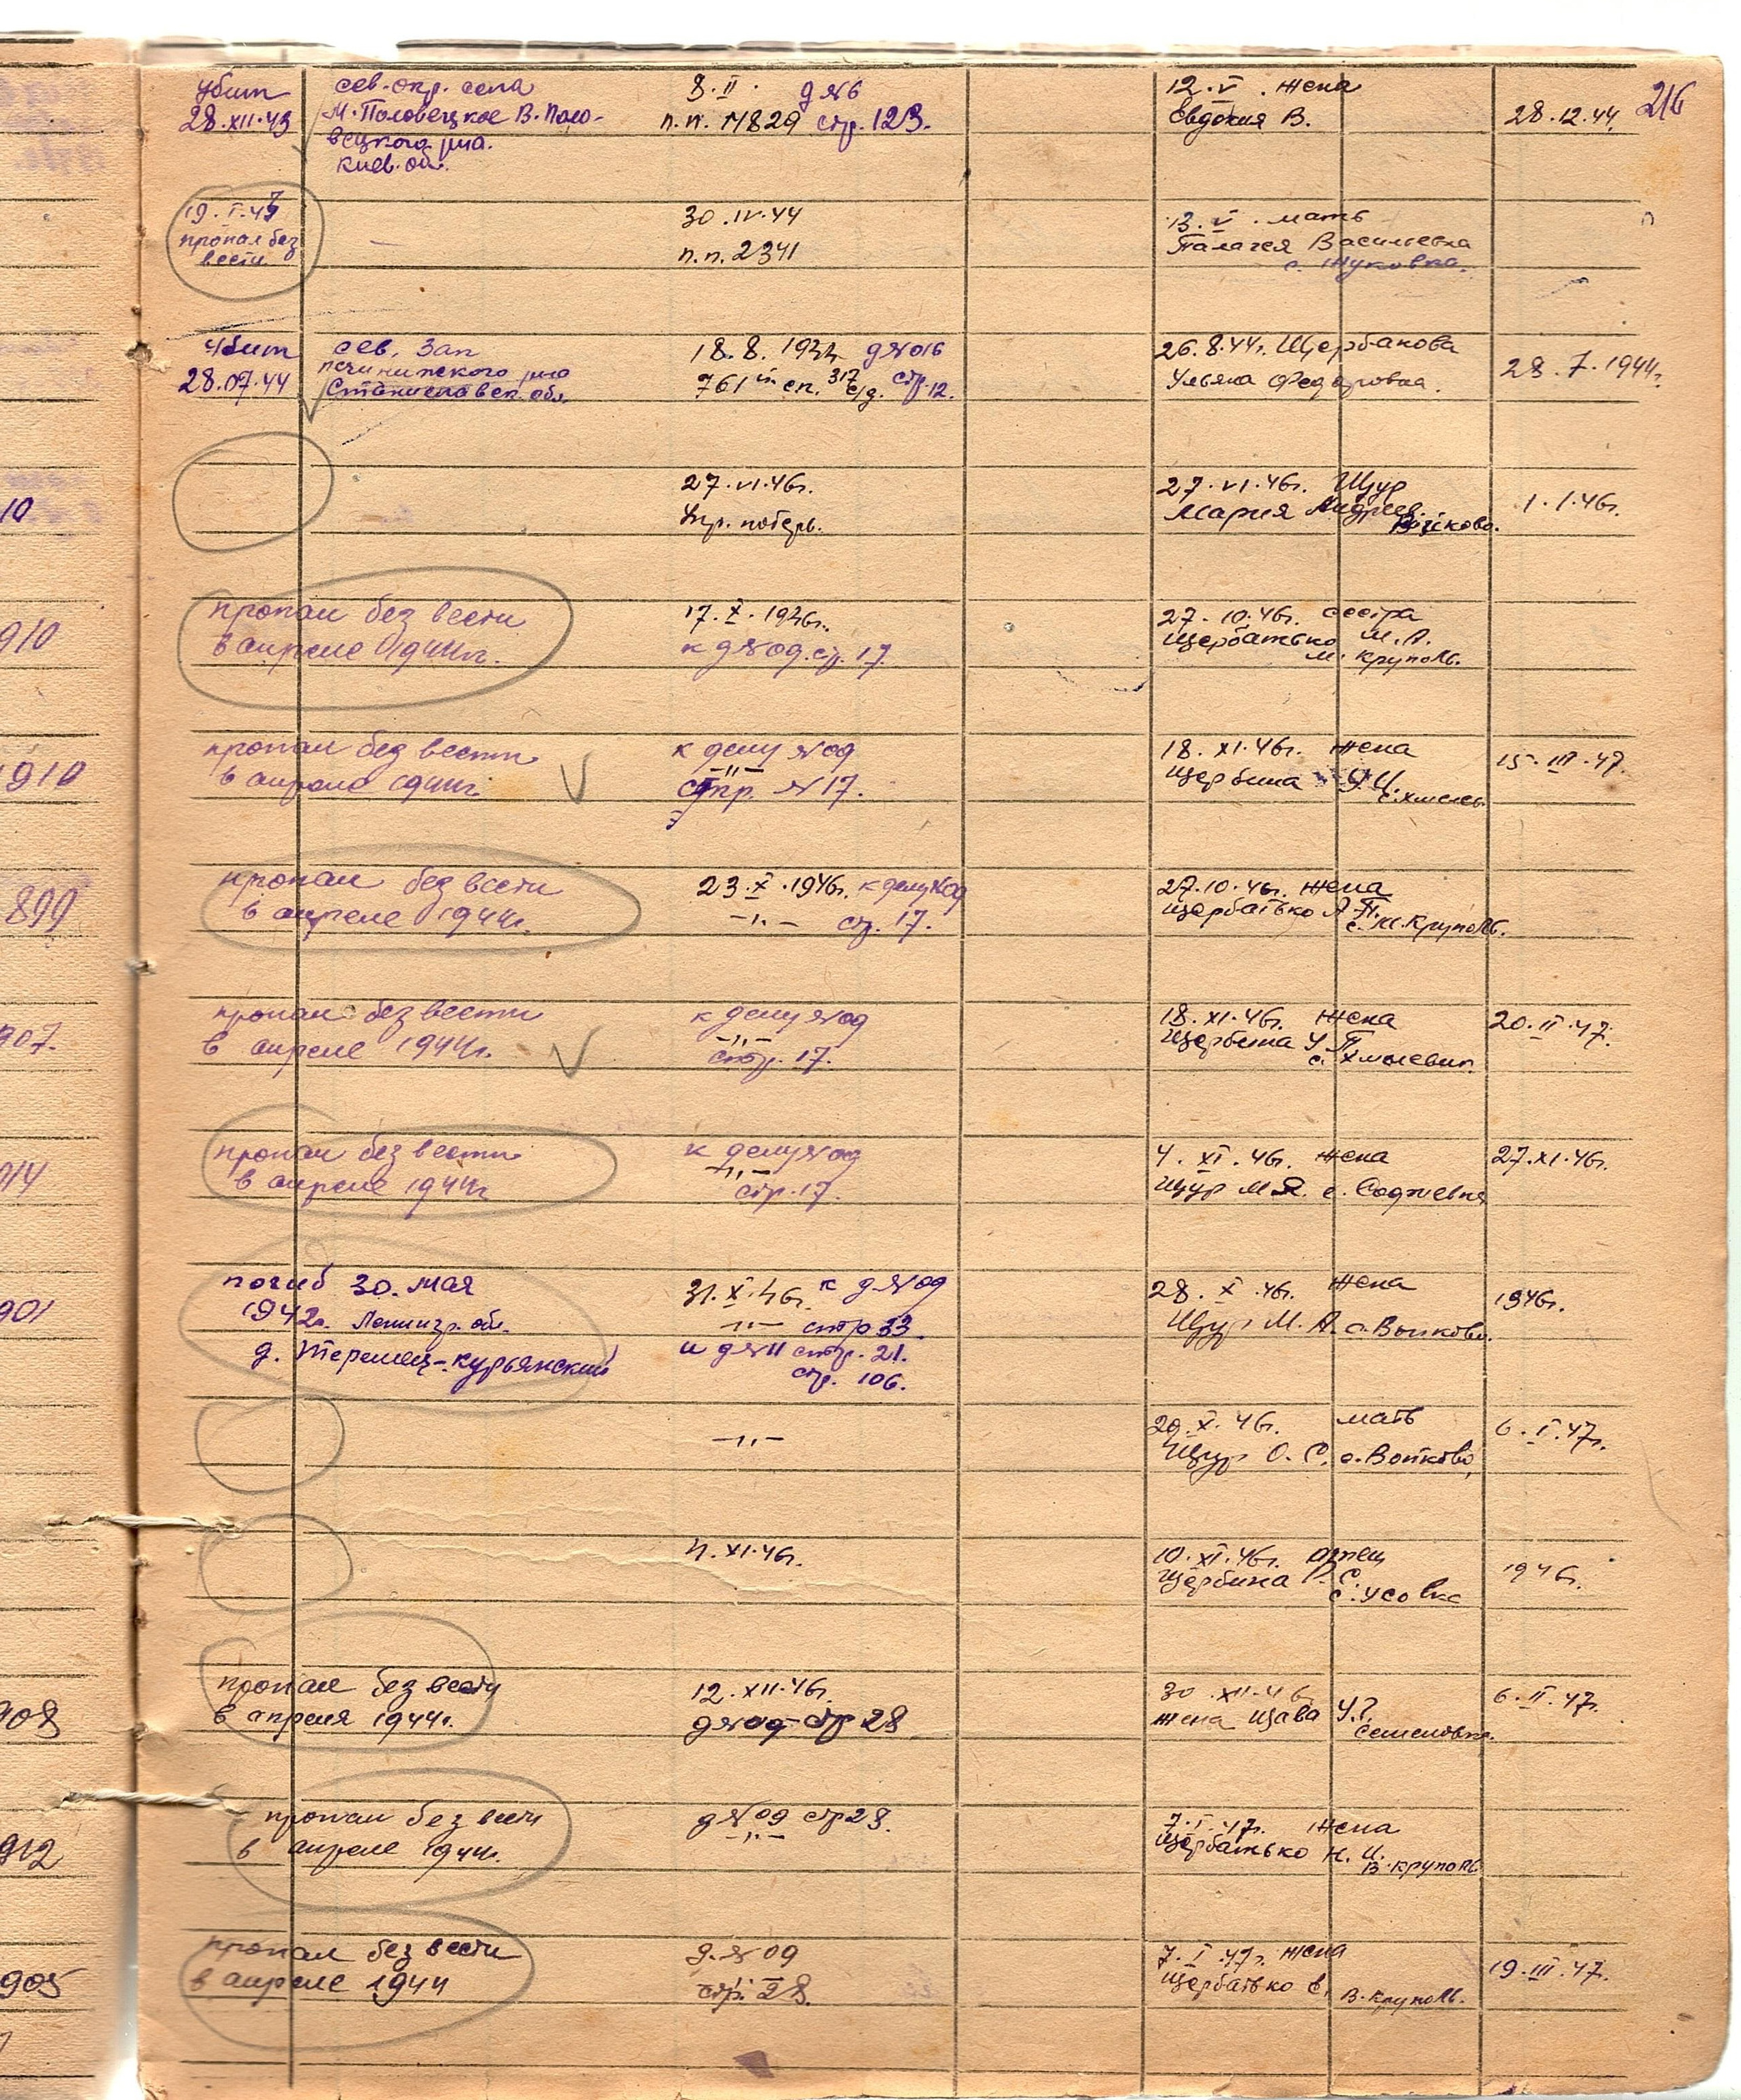 216
убит сев. окр. села 8.II. д №6 12.V. жена
28.XII.43 М. Половецкое В. Поло- п.п. 14829 стр. 123. Евдокия В. 28.12.44.
вецкого р-на.
Киев. об.
19.I.43 30.IV.44 13.V. мать
пропал без п.п. 2341 Палагея Васильевна
вести с. Жуковка.
убит сев. зап 18.8.1944 д №016 26.8.44г. Щербакова
28.07.44 р-на 761 сп. 317 с/д. стр. 12. Ульяна Федоровна. 28.7.1944г.
Станиславск. обл.
10 27.VI.46г. 27.VI.46г. Щур 1.1.46г.
потерь. Мария Андреев.
Войково.
пропал без вести 17.X.1946г. 27.10.46г. сестра
910 в апреле 1944г. к д №09. стр. 17. Щербатько М.А.
м. Круполь.
пропал без вести к делу №09 18.XI.46г. жена 15.III.47.
910 в апреле 1944г. -"- Щербина
стр. №17.
пропал без вести 23.X.1946г. к делу №09 27.10.46г. жена
899 в апреле 1944г. -"- стр. 17. Щербатько А.П.
с. М. Круполь.
пропал без вести к делу №09 18.XI.46г. жена 20.II.47г.
907. в апреле 1944г. -"- Щербина У.П.
стр. 17. с. Хмелевик
пропал без вести к делу №09 4.XI.46г. жена 27.XI.46г.
914 в апреле 1944г -"- Щур М.Я. с.
стр. 17.
погиб 30. мая 31.X.46г. к д №09 28.X.46г. жена 1946г.
901 1942г. Ленингр. обл. -"- стр 33. Щур М.А. с. Войково.
д. Теремец-Курлянский и д №11 стр. 21.
стр. 106.
-"- 29.X.46г. мать 6.I.47г.
Щур О.С. с. Войково,
4.XI.46г. 10.XI.46г. отец 1946г.
Щербина Р.С.
с. Усовка
пропал без вести 12.XII.46г. 30.XII.46г 6.II.47г.
908 в апреля 1944г. д №09 стр 28 жена Щава У.Г.
Семеновка.
пропал без вести д №09 стр 28. 7.I.47г. жена
912 в апреле 1944г. -"- Щербатько Н.И.
В. Круполь
пропал без вести д. №09 7.I.47г. жена 19.III.47г.
905 в апреле 1944 стр. 28. Щербатько Е. В. Круполь.